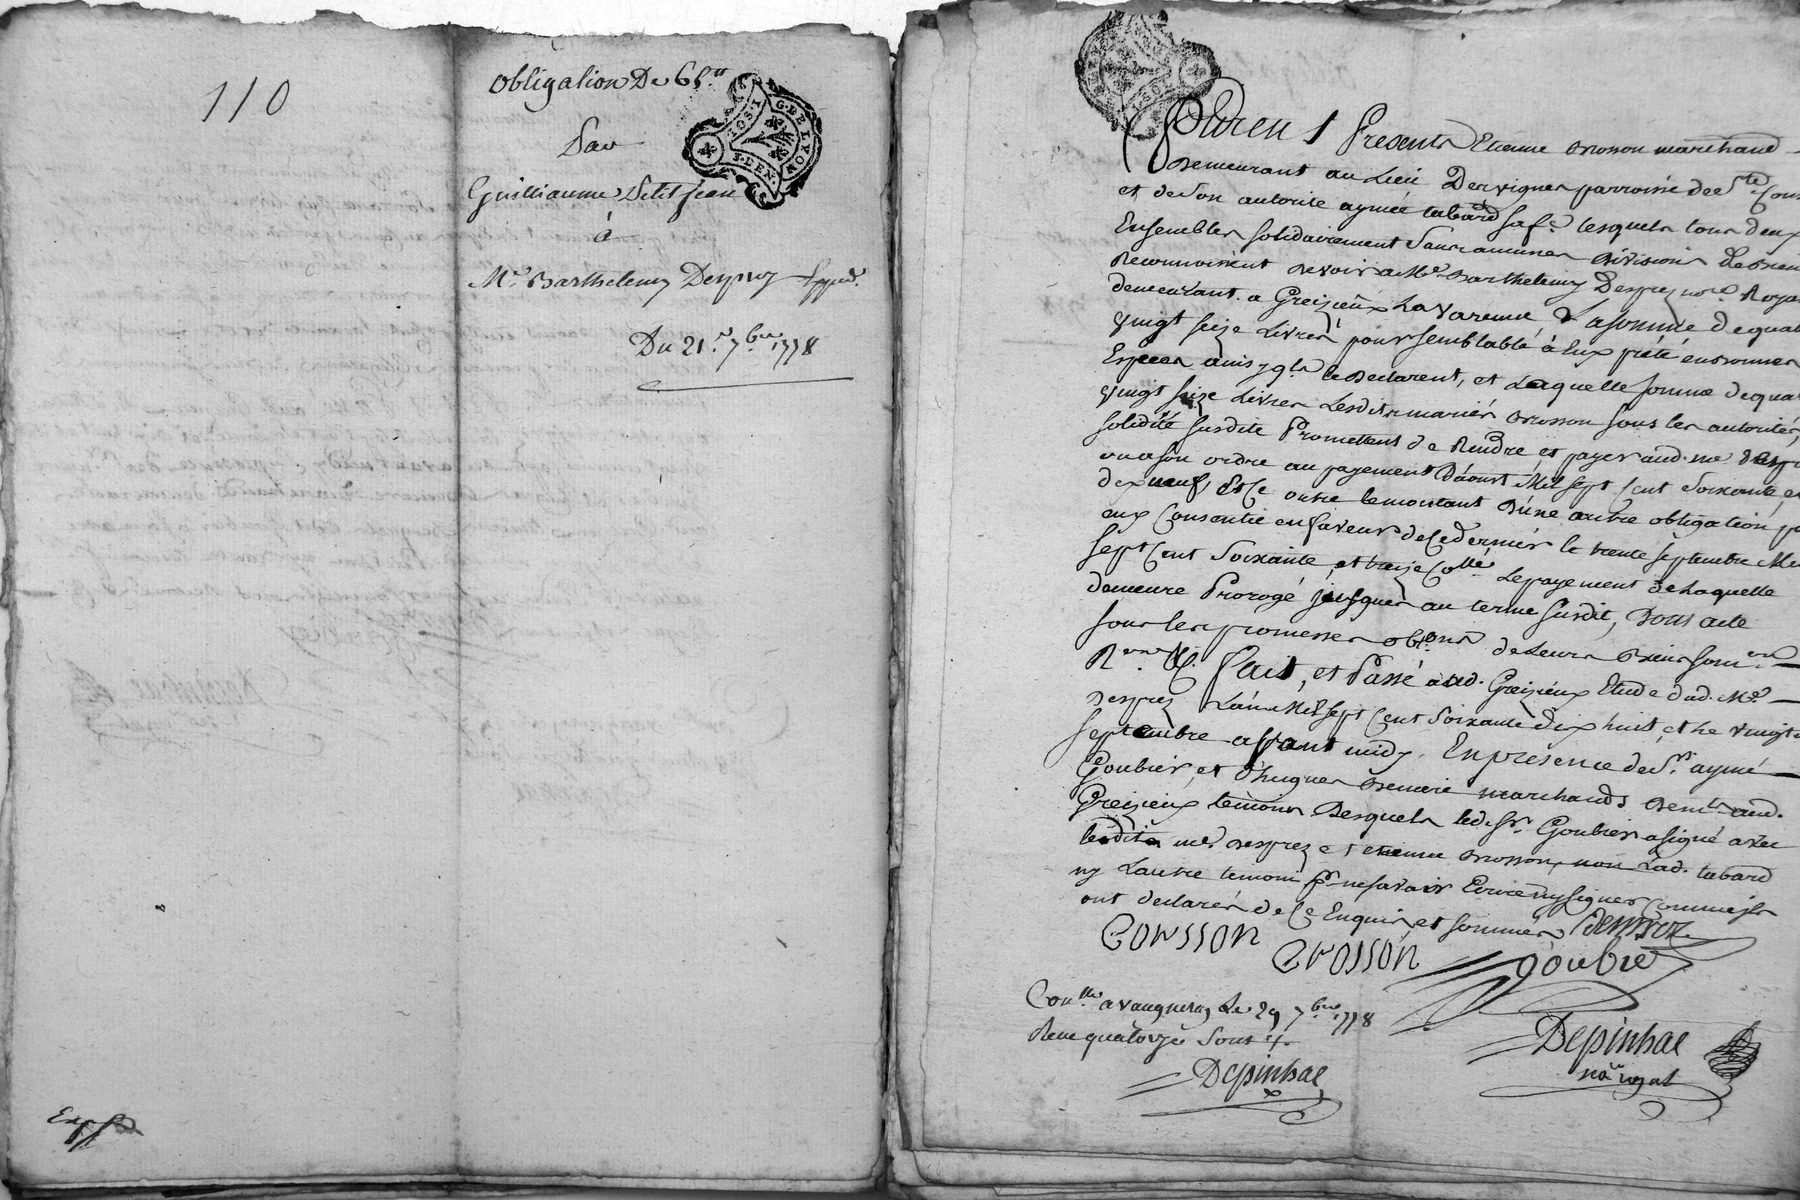 110
Obligation De 65 ₶
Par
Guilliaume Petit Jean
à
Me Barthelemy Desprez
Du 21e 7bre 1778
G. DE LYON
Exp
Pardevt Presents Etienne Crosson marchand
Demeurant au Lieu Dervignes parroisse de Ste
et de son autorité aymée tabard sa fe lesquels tous deux
Ensembles solidairement sans aucune division
Reconnoissent devoir a Me Barthelemy Desprez nore Royal
demeurant a Greizieux La Varenne, La somme de quatre
vingt seize Livres pour semblable à Eux prété en bonnes
Especes ainsy qls le Declarent, et Laquelle somme de quatre
vingt seize Livres Lesdits mariés Crosson sous les autorités,
solidité susdite Promettent de Rendre et payer aud. Me Desprez
ou a son ordre au payement D'aoust Mil sept Cent Soixante et
dix neuf, Et Ce outre le montant D'une autre obligation par
eux Consentie en faveur de Ce dernier le trente septembre Mil
sept Cent Soixante et treize Collé Le payement de Laquelle
demeure Prorogé jusques au terme susdit, Dont acte
sous les promesses oblons de Leurs Biens
Fait, et Passé aud. Greizieux Etude dud. Me
Desprez L'an Mil sept Cent Soixante Dix huit, et le vingt
septembre avant midy. En présence de Sr aymé
Goubier, et d'hugues marchands Demts aud.
Greizieux temoins Desquels led. Sr Goubier a signé avec
ledit Me Desprez et etienne Crosson, non Lad. tabard
ny Lautre temoin pr ne savoir Ecrire ny signer Comme ils
ont declarés de Ce Enquis et sommés Desprez
Crosson goubie
Conlle a vaugneray Le 29 7bre 1778
Reçu quatorze sous
Depinhac
Depinhac
nore royal